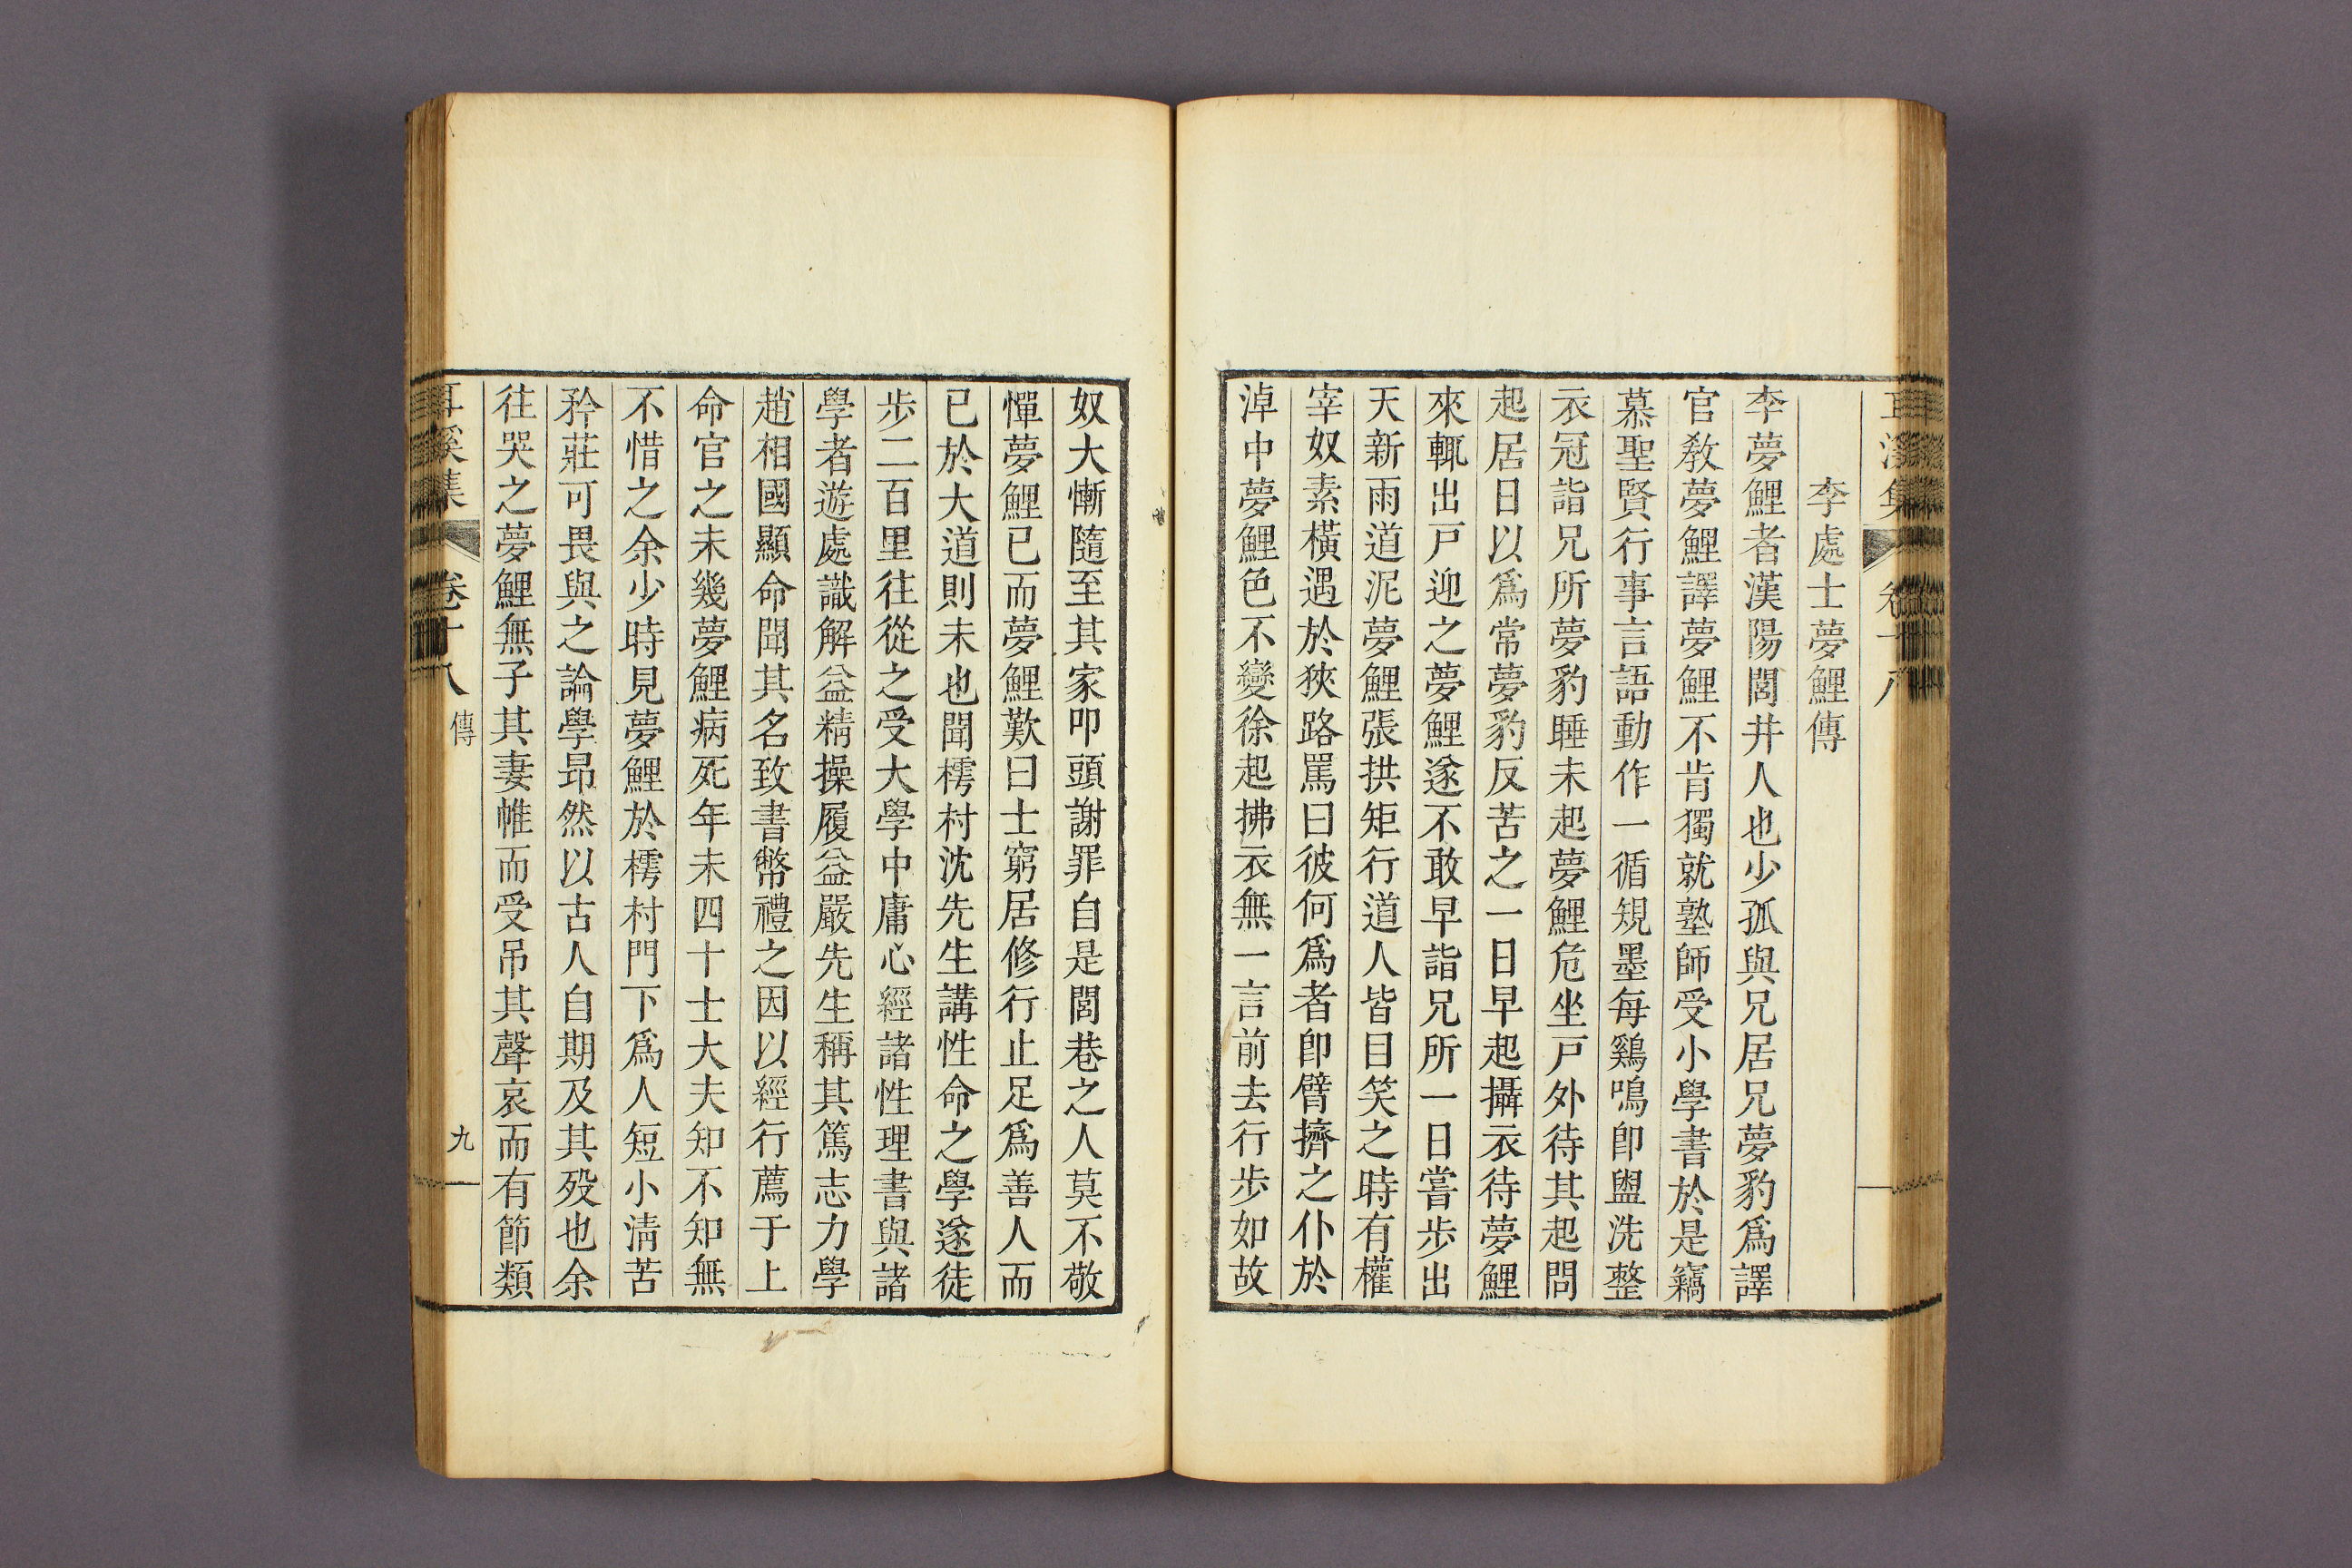 李處士夢鯉傳
李夢鯉者漢陽閭井人也少孤與兄居兄夢豹爲譯
官敎夢鯉譯夢鯉不肯獨就塾師受小學書於是竊
慕聖賢行事言語動作一循規墨每鷄鳴卽盥洗整
衣冠詣兄所夢豹睡未起夢鯉危坐戸外待其起問
起居日以爲常夢豹反苦之一日早起攝衣待夢鯉
來輒出戸迎之夢鯉遂不敢早詣兄所一日嘗步出
天新雨道泥夢鯉張拱矩行道人皆目笑之時有權
宰奴素橫遇於狹路罵曰彼何爲者卽臂擠之仆於
淖中夢鯉色不變徐起拂衣無一言前去行步如故
奴大慚隨至其家叩頭謝罪自是閭巷之人莫不敬
憚夢鯉已而夢鯉歎曰士窮居修行止足爲善人而
已於大道則未也聞樗村沈先生講性命之學遂徒
步二百里往從之受大學中庸心經諸性理書與諸
學者遊處識解益精操履益嚴先生稱其篤志力學
趙相國顯命聞其名致書幣禮之因以經行薦于上
命官之未幾夢鯉病死年未四十士大夫知不知無
不惜之余少時見夢鯉於樗村門下爲人短小淸苦
矜莊可畏與之論學昂然以古人自期及其歿也余
往哭之夢鯉無子其妻帷而受吊其聲哀而有節類
耳溪集 卷十八 傳 九